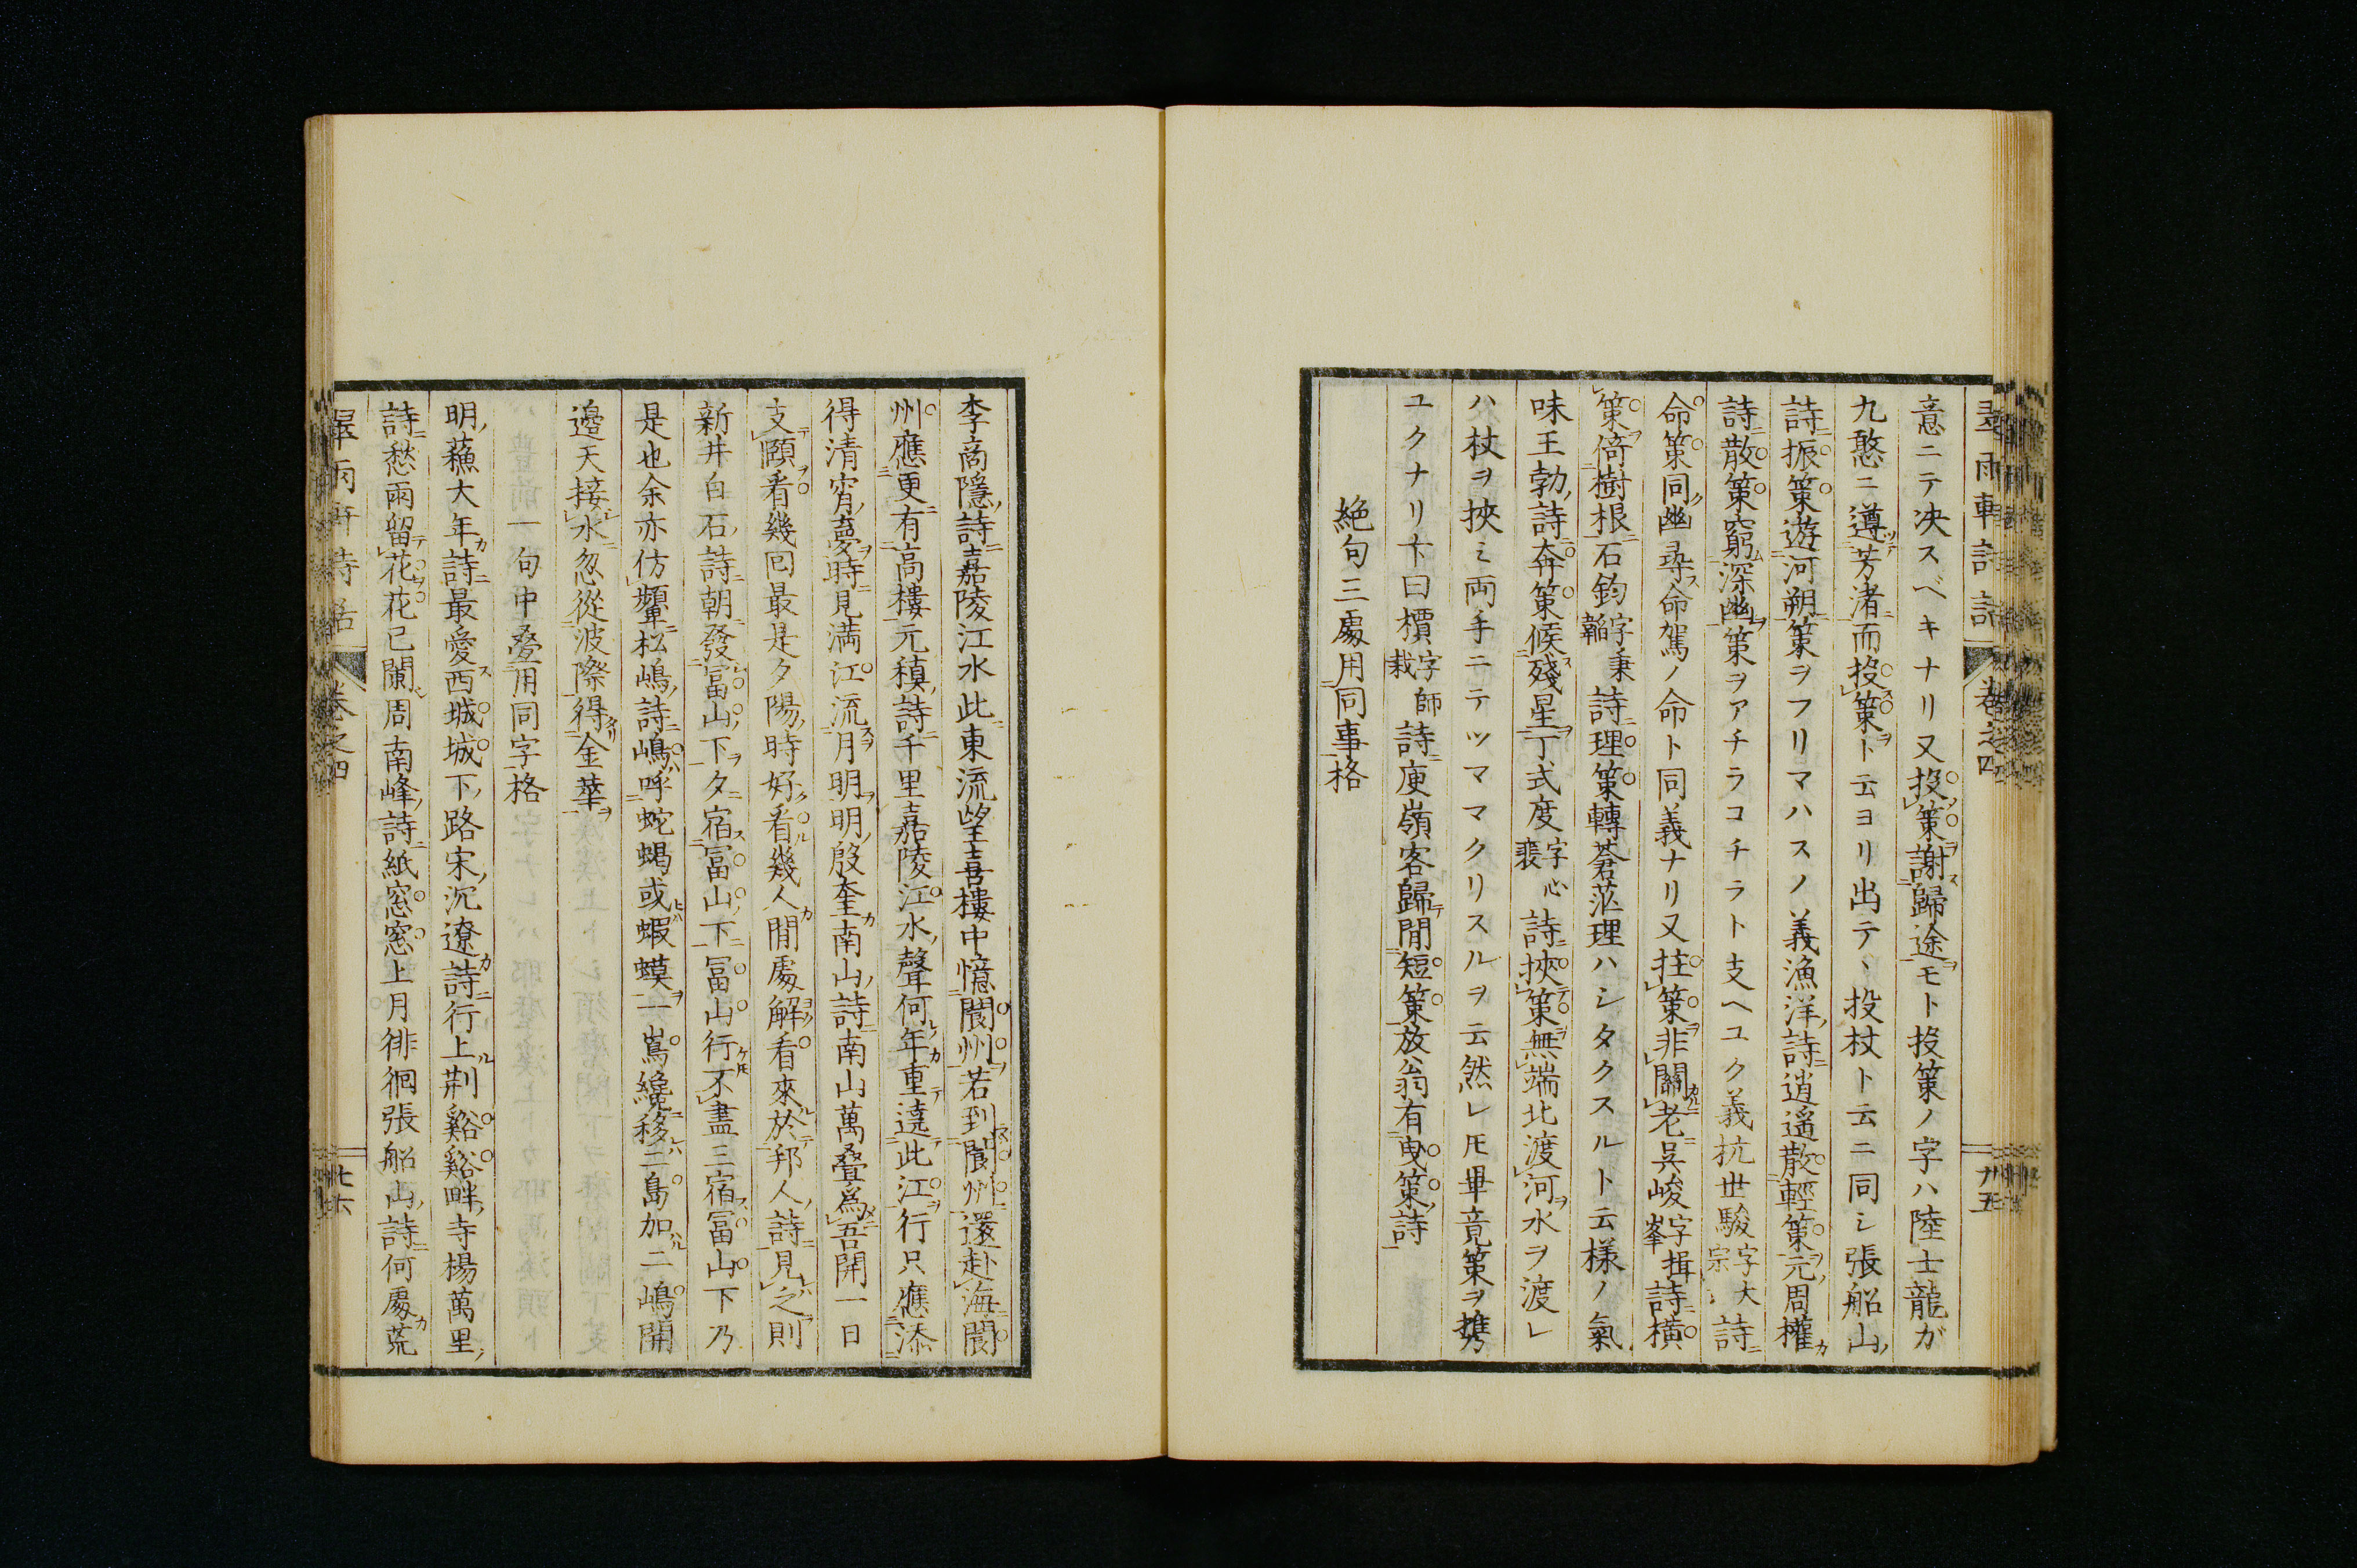 意ニテ决スベキナリ又投策謝歸途モト投策ノ字ハ陸士龍ガ
九愍ニ遵芳渚而投策ト云ヨリ出テ、投杖ト云ニ同シ張船山
詩振策遊河朔策ヲフリマハスノ義漁洋詩逍遥散輕策元周權
詩散策窮深幽策ヲアチラコチラト支ヘユク義抗世駿字大宗詩
命策同幽尋命駕ノ命ト同義ナリ又拄策非關老呉峻字揖峯詩横
策倚樹根石鈞字秉韜詩理策轉蒼茫理ハシタクスルト云樣ノ氣
味王勃詩奔策候殘星丁式度字心裴詩挾策無端北渡河水ヲ渡レ
ハ杖ヲ挾ミ両手ニテツママクリスルヲ云然レ𪜈畢竟策ヲ携
ユクナリ卞曰櫝字師栽詩庾嶺客歸閒短策放翁有曳策詩
絶句三處用同事格
李商隱詩嘉陵江水此東流望喜樓中憶閬州若到閬州還赴海閬
州應更有高樓元稹詩千里嘉陵江水聲何年重遶此江行只應添
得清宵夢時見滿江流月明明殷奎南山詩南山萬叠爲吾開一日
支頤看幾回最是夕陽時好看幾人閒處解看來於邦人詩見之則
新井白石詩朝發冨山下夕宿冨山下冨山行不盡三宿冨山下乃
是也余亦仿顰松嶋詩嶋呼蛇蝎或蝦蟆一嶌纔移二島加二嶋開
邊天接水忽從波際得金華
一句中叠用同字格
明蘓大年詩最愛西城城下路宋沉遼詩行上荆谿谿畔寺楊萬里
詩愁雨留花花已闌周南峰詩紙窓窓上月徘徊張船山詩何處荒